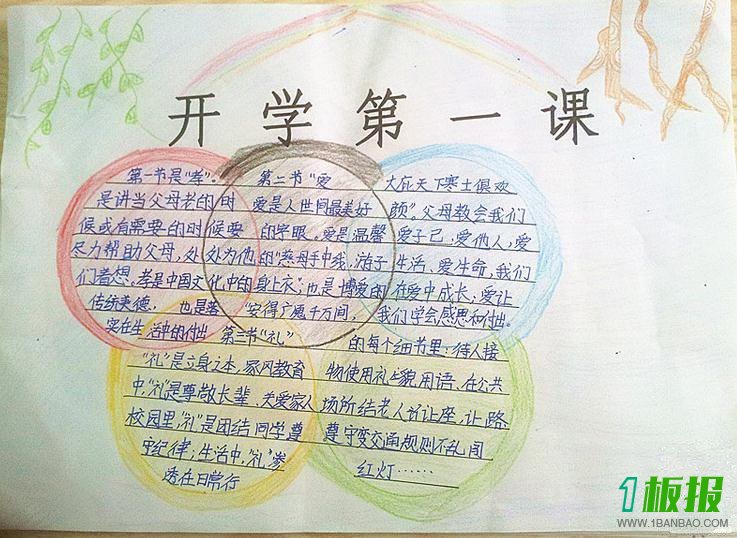 开学第一课
第一节是“孝”。
是讲当父母老的时
候或有需要的时候要
尽力帮助父母,处处为他
们着想。孝是中国文化中的
传统美德, 也是落
实在生活中的付出
第二节“爱
爱是人世间最美好
的字眼。爱是温馨
的“慈母手中线,游子
身上衣”;也是博爱的
“安得广厦千万间,
大庇天下寒士俱欢
颜”。父母教会我们
爱子己,爱他人,爱
生活、爱生命,我们
在爱中成长;爱让
我们学会感恩和付出。
第三节“礼”
“礼”是立身之本,家风教育
中,“礼”是尊敬长辈、关爱家人
校园里,“礼”是团结同学尊
守纪律;生活中,“礼”渗
透在日常行
的每个细节里:待人接
物使用礼貌用语、在公共
场所给老人让座,让路
遵守交通规则不乱闯
红灯……
1板报
WWW.1BANBAO.COM